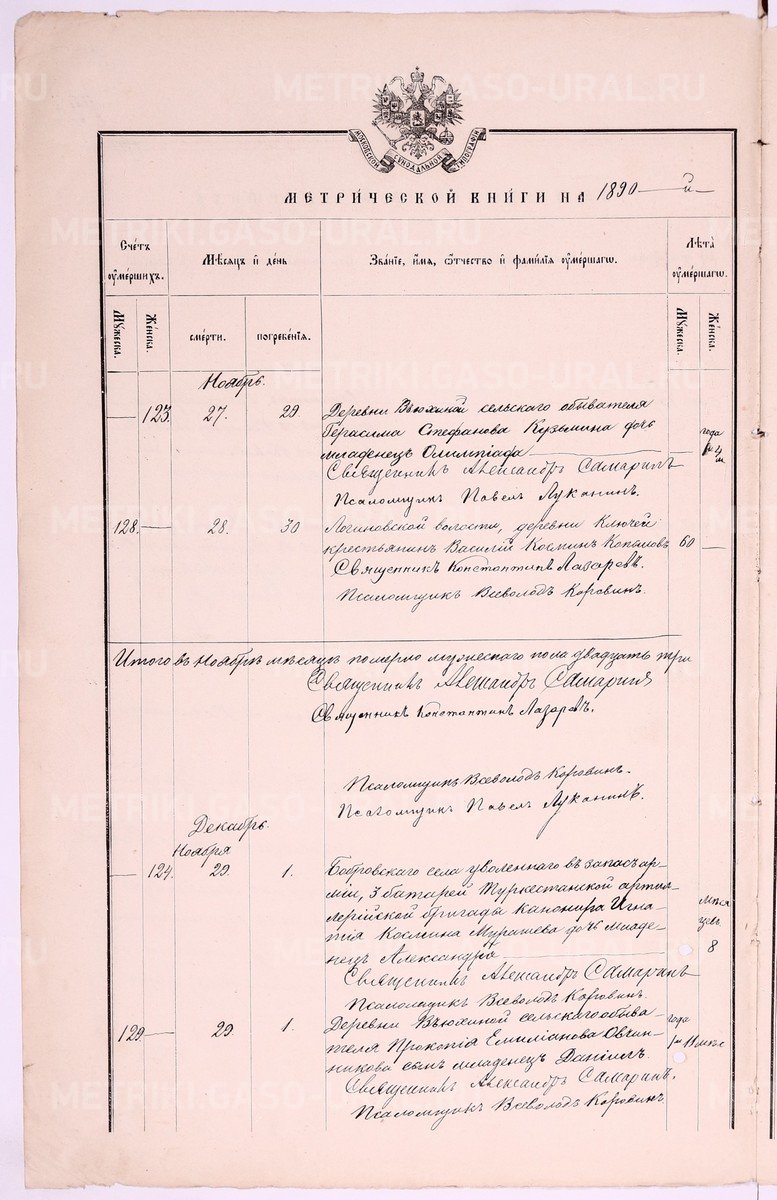 МОСКОВСКОЙ СѴНОДАЛЬНОЙ ТИПОГРАФІИ
МЕТРИ́ЧЕСКОЙ КНИ́ГИ НА 1890 й
Сче́тъ ᲂу҆ме́ршихъ.
Мѣ́сяцъ и҆ де́нь
Зва́нїе, и҆́мя, ѻ҆́тчество и҆ фами́лїя ᲂу҆ме́ршагѡ.
Лѣ́та ᲂу҆ме́ршагѡ.
Мꙋ́жеска.
Же́нска.
сме́рти.
погребе́нїя.
Мꙋ́жеска.
Же́нска.
Ноябрь.
123. 27. 29. Деревни Вьюхиной сельскаго обывателя
Герасима Стефанова Кузьмина дочь года
младенецъ Олимпіада 4 м
Священникъ Александръ Самаринъ
Псаломщикъ Павелъ Луканинъ.
128. 28. 30 Логиновской волости, деревни Ключей
крестьянинъ Василій Космин 60
Священникъ Константинъ Лазаревъ.
Псаломщикъ Всеволодъ Коровинъ.
Итого въ Ноябрѣ мѣсяцѣ померло мужескаго пола двадцать три
Священникъ Александръ Самаринъ
Священникъ Константинъ Лазаревъ.
Псаломщикъ Всеволодъ Коровинъ.
Псаломщикъ Павелъ Луканинъ.
Декабрь.
Ноября
124. 29. 1. Бобровскаго села уволеннаго въ запасъ ар-
міи, 3 батареи Туркестанской артил-
лерійской бригады канонира Игна- мѣся
тія Космина Мурашева дочь младе- цевъ
нецъ Александра 8
Священникъ Александръ Самаринъ
Псаломщикъ Всеволодъ Коровинъ.
129 29. 1. Деревни Вьюхиной сельскаго обыва- года
теля Прокопія Емиліанова Овчин- 1 и 11 мѣс
никова сынъ младенецъ Даніилъ.
Священникъ Александръ Самаринъ.
Псаломщикъ Всеволодъ Коровинъ
METRIKI.GASO-URAL.RU